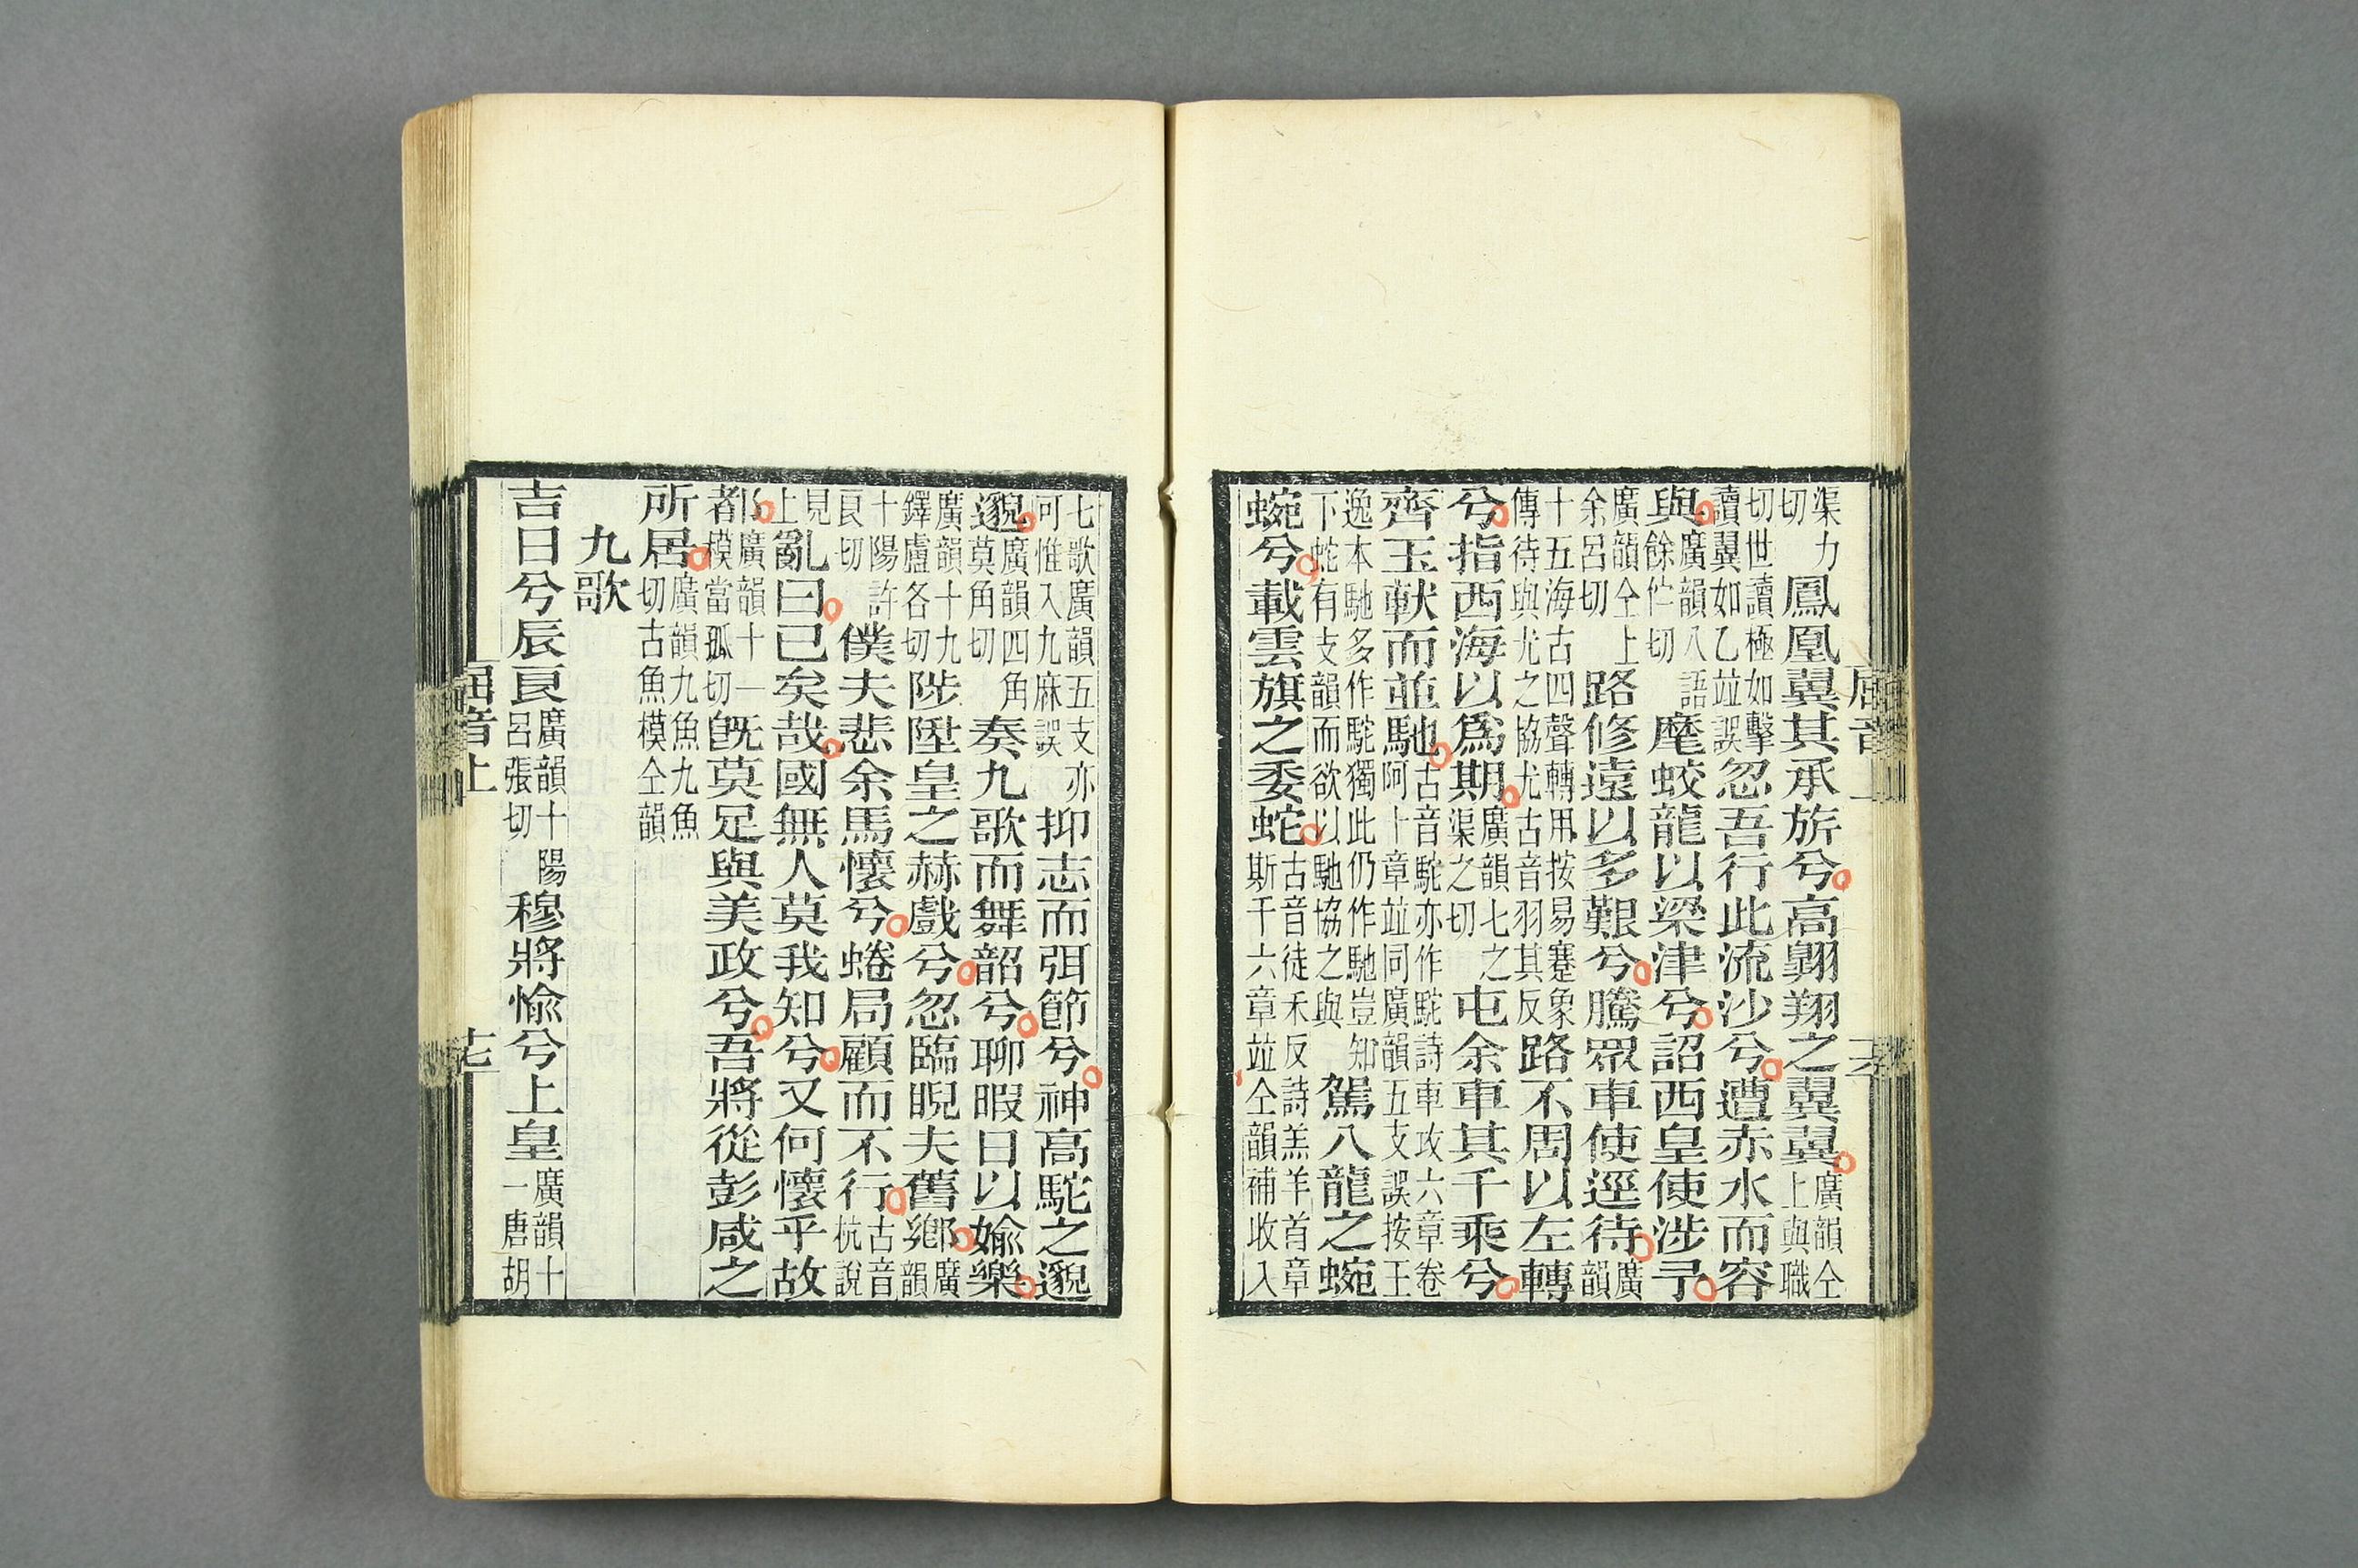 渠力切鳳凰翼其承旂兮高翺翔之翼翼廣韻仝上與職
切世讀極如擊讀翼如乙並誤忽吾行此流沙兮遵赤水而容
與廣韻八語餘佇切麾蛟龍以梁津兮詔西皇使涉予
廣韻仝上余呂切路修遠以多艱兮騰眾車使逕待廣韻
十五海古四聲轉用按易蹇象傳待與尤之協尤古音羽其反路不周以左轉
兮指西海以爲期廣韻七之渠之切屯余車其千乘兮
齊玉軑而並馳古音駝亦作駝詩車攻六章卷阿十章並同廣韻五支誤按王
逸本馳多作駝獨此仍作馳豈知下蛇有支韻而欲以馳協之與駕八龍之蜿
蜿兮載雲旗之委蛇古音徒禾反詩羔羊首章斯干六章並仝韻補收入
七歌廣韻五支亦可惟入九麻誤抑志而弭節兮神高駝之邈
邈廣韻四角莫角切奏九歌而舞韶兮聊暇日以婾樂
廣韻十九鐸盧各切陟陞皇之赫戲兮忽臨睨夫舊鄉廣韻
十陽許良切僕夫悲余馬懷兮蜷局顧而不行古音杭說
見上亂曰已矣哉國無人莫我知兮又何懷乎故
都廣韻十一模當孤切旣莫足與美政兮吾將從彭咸之
所居廣韻九魚九魚切古魚模仝韻
九歌
吉日兮辰良廣韻十陽呂張切穆將愉兮上皇廣韻十一唐胡
屈音上
十七